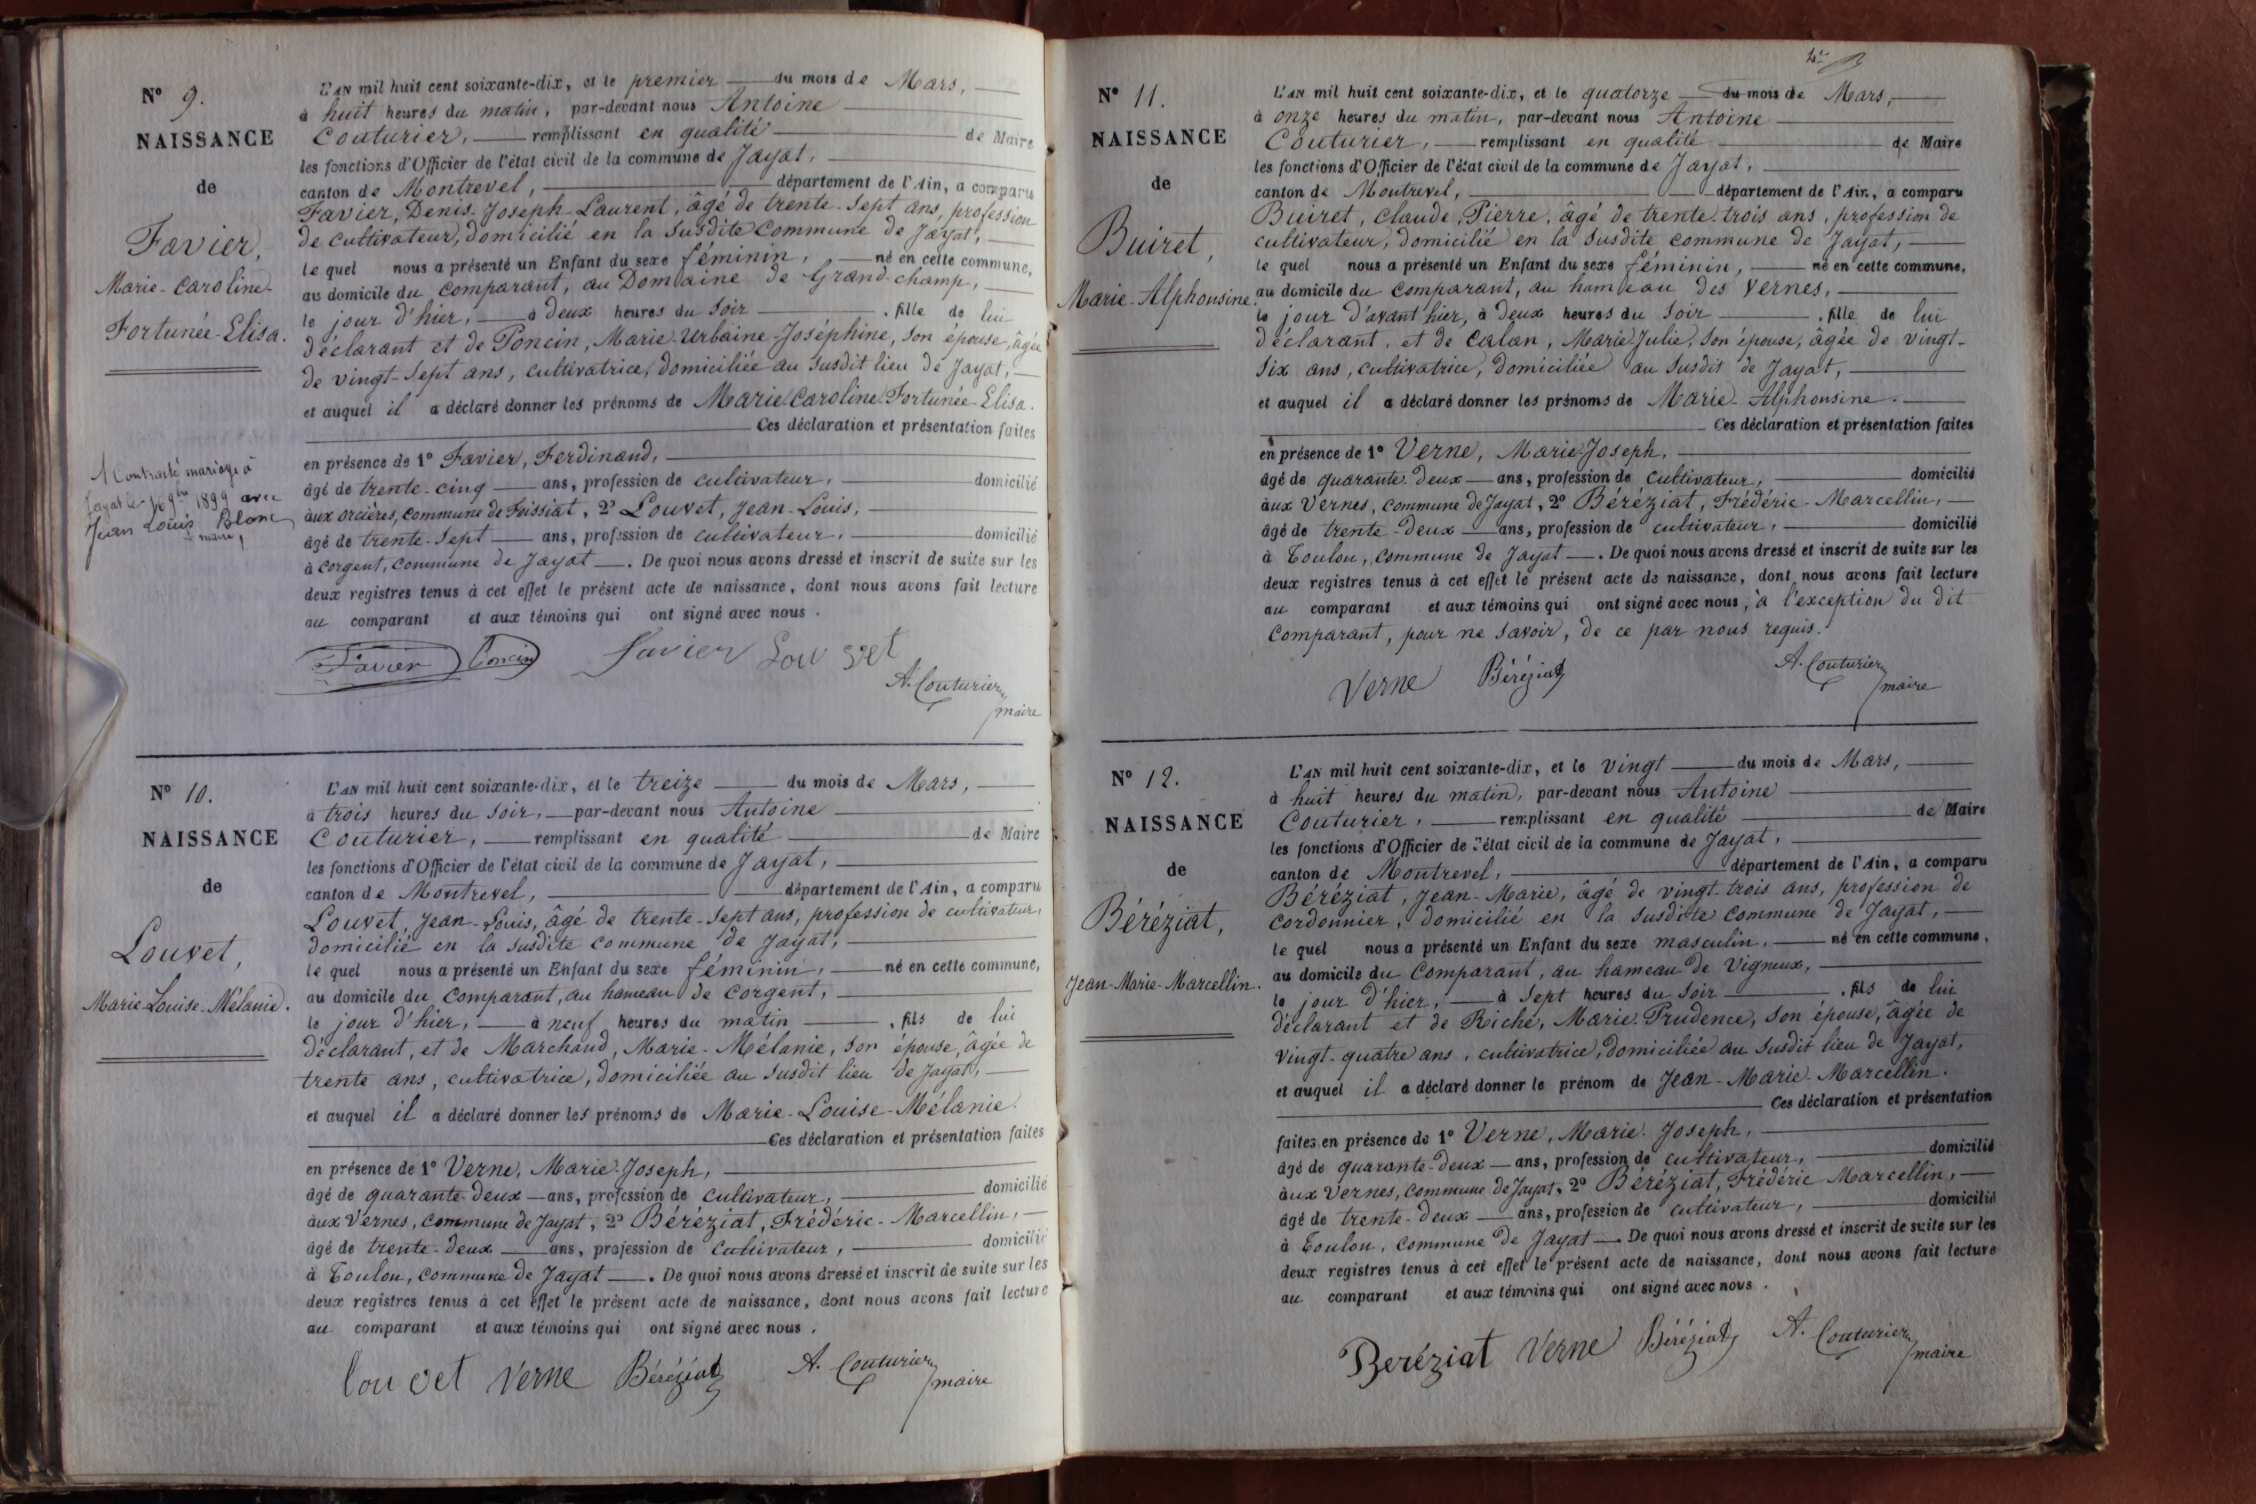 N° 9.
NAISSANCE
de
Favier,
Marie-Caroline-
Fortunée-Elisa.
Contracté mariage à
Jayat le 16 9bre 1899 avec
Jean Louis Blanc
maire,
L'AN mil huit cent soixante-dix, et le premier du mois de Mars,
à huit heures du matin, par-devant nous Antoine
Couturier, remplissant en qualité de Maire
les fonctions d'Officier de l'état civil de la commune de Jayat,
canton de Montrevel, département de l'Ain, a comparu
Favier, Denis-Joseph-Laurent, âgé de trente-sept ans, profession
de cultivateur, domicilié en la susdite commune de Jayat,
le quel nous a présenté un Enfant du sexe féminin, né en cette commune,
au domicile du comparant, au Domaine de Grand-champ,
le jour d'hier, à deux heures du soir, fille de lui
déclarant et de Poncin, Marie-Urbaine-Joséphine, son épouse, âgée
de vingt-sept ans, cultivatrice, domiciliée au susdit lieu de Jayat,
et auquel il a déclaré donner les prénoms de Marie-Caroline-Fortunée-Elisa.
Ces déclaration et présentation faites
en présence de 1° Favier, Ferdinand,
âgé de trente-cinq ans, profession de cultivateur, domicilié
aux orcières, commune de Foissiat, 2° Louvet, Jean-Louis,
âgé de trente-sept ans, profession de cultivateur, domicilié
à Corgent, commune de Jayat. De quoi nous avons dressé et inscrit de suite sur les
deux registres tenus à cet effet le présent acte de naissance, dont nous avons fait lecture
au comparant et aux témoins qui ont signé avec nous.
Favier Poncin Favier Louvet
A. Couturier
maire
N° 10.
NAISSANCE
de
Louvet,
Marie-Louise-Mélanie.
L'AN mil huit cent soixante-dix, et le treize du mois de Mars,
à trois heures du soir, par-devant nous Antoine
Couturier, remplissant en qualité de Maire
les fonctions d'Officier de l'état civil de la commune de Jayat,
canton de Montrevel, département de l'Ain, a comparu
Louvet, Jean-Louis, âgé de trente-sept ans, profession de cultivateur,
domicilié en la susdite commune de Jayat,
le quel nous a présenté un Enfant du sexe féminin, né en cette commune,
au domicile du comparant, au hameau de Corgent,
le jour d'hier, à neuf heures du matin, fils de lui
déclarant, et de Marchand, Marie-Mélanie, son épouse, âgée de
trente ans, cultivatrice, domiciliée au susdit lieu de Jayat,
et auquel il a déclaré donner les prénoms de Marie-Louise-Mélanie.
Ces déclaration et présentation faites
en présence de 1° Verne, Marie-Joseph,
âgé de quarante-deux ans, profession de cultivateur, domicilié
aux Vernes, commune de Jayat, 2° Béréziat, Frédéric-Marcellin,
âgé de trente-deux ans, profession de cultivateur, domicilié
à Toulon, commune de Jayat. De quoi nous avons dressé et inscrit de suite sur les
deux registres tenus à cet effet le présent acte de naissance, dont nous avons fait lecture
au comparant et aux témoins qui ont signé avec nous.
Louvet Verne Béréziat A. Couturier
maire
N° 11.
NAISSANCE
de
Buiret,
Marie-Alphonsine.
L'AN mil huit cent soixante-dix, et le quatorze du mois de Mars,
à onze heures du matin, par-devant nous Antoine
Couturier, remplissant en qualité de Maire
les fonctions d'Officier de l'état civil de la commune de Jayat,
canton de Montrevel, département de l'Ain, a comparu
Buiret, Claude-Pierre, âgé de trente-trois ans, profession de
cultivateur, domicilié en la susdite commune de Jayat,
le quel nous a présenté un Enfant du sexe féminin, né en cette commune,
au domicile du comparant, au hameau des Vernes,
le jour d'avant hier, à deux heures du soir, fille de lui
déclarant, et de Calan, Marie-Julie, son épouse, âgée de vingt-
six ans, cultivatrice, domiciliée au susdit de Jayat,
et auquel il a déclaré donner les prénoms de Marie-Alphonsine.
Ces déclaration et présentation faites
en présence de 1° Verne, Marie-Joseph,
âgé de quarante-deux ans, profession de cultivateur, domicilié
aux Vernes, commune de Jayat, 2° Béréziat, Frédéric-Marcellin,
âgé de trente-deux ans, profession de cultivateur, domicilié
à Toulon, commune de Jayat. De quoi nous avons dressé et inscrit de suite sur les
deux registres tenus à cet effet le présent acte de naissance, dont nous avons fait lecture
au comparant et aux témoins qui ont signé avec nous, à l'exception du dit
comparant, pour ne savoir, de ce par nous requis.
Verne Béréziat A. Couturier
maire
N° 12.
NAISSANCE
de
Béréziat,
Jean-Marie-Marcellin.
L'AN mil huit cent soixante-dix, et le vingt du mois de Mars,
à huit heures du matin, par-devant nous Antoine
Couturier, remplissant en qualité de Maire
les fonctions d'Officier de l'état civil de la commune de Jayat,
canton de Montrevel, département de l'Ain, a comparu
Béréziat, Jean-Marie, âgé de vingt-trois ans, profession de
cordonnier, domicilié en la susdite commune de Jayat,
le quel nous a présenté un Enfant du sexe masculin, né en cette commune,
au domicile du comparant, au hameau de Vigneux,
le jour d'hier, à sept heures du soir, fils de lui
déclarant et de Riche, Marie-Prudence, son épouse, âgée de
vingt-quatre ans, cultivatrice, domiciliée au susdit lieu de Jayat,
et auquel il a déclaré donner le prénom de Jean-Marie-Marcellin.
Ces déclaration et présentation
faites en présence de 1° Verne, Marie-Joseph,
âgé de quarante-deux ans, profession de cultivateur, domicilié
aux Vernes, commune de Jayat, 2° Béréziat, Frédéric Marcellin,
âgé de trente-deux ans, profession de cultivateur, domicilié
à Toulon, commune de Jayat. De quoi nous avons dressé et inscrit de suite sur les
deux registres tenus à cet effet le présent acte de naissance, dont nous avons fait lecture
au comparant et aux témoins qui ont signé avec nous.
Beréziat Verne Béréziat A. Couturier
maire